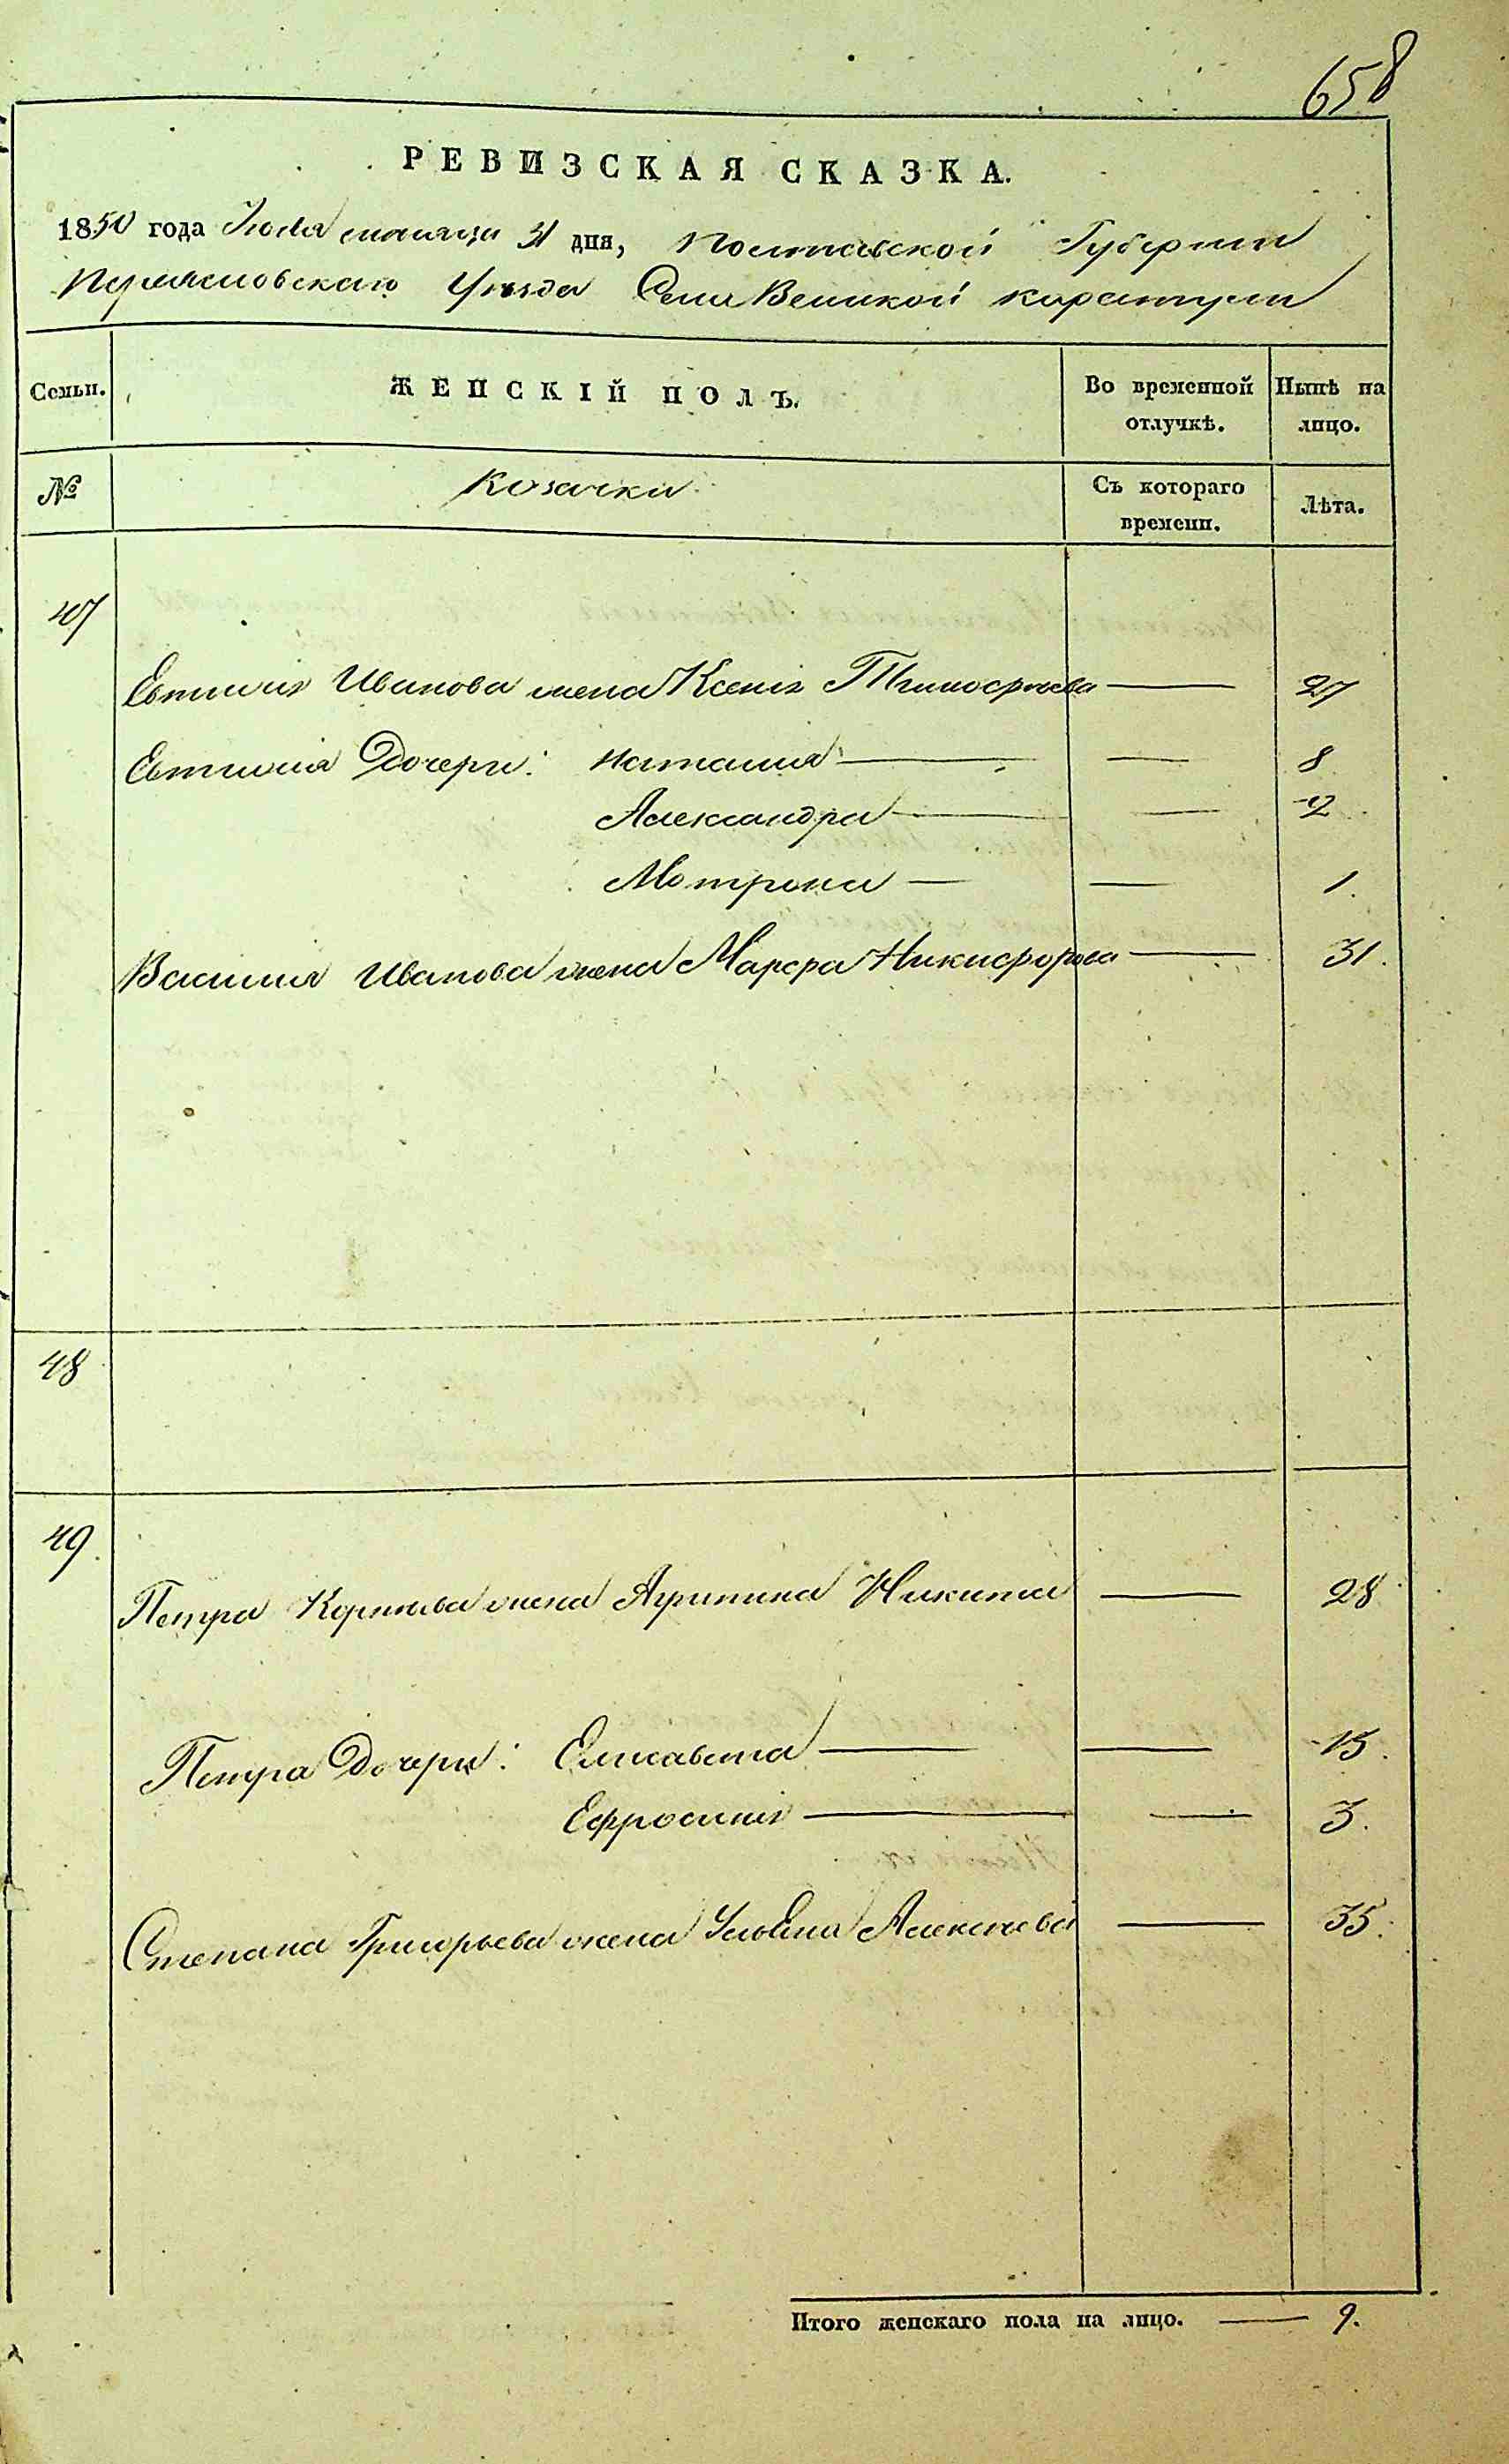 658
РЕВИЗСКАЯ СКАЗКА.
1850 года Июля месяца 31 дня, Полтавской Губернии
Переяславского Уезда Села Великой каратули
Семьи. ЖЕНСКІЙ ПОЛЪ. Во временной отлучкѣ. Нынѣ на лицо.
№ Козачки Съ котораго времени. Лѣта.
47
Евтихия Иванова жена Ксенія Тимофеева — 27
Евтихия Дочери: Наталия — — 8
Александра — — 2
Мотрона — — 1.
Василия Иванова жена Марфа Никифорова — 31.
48
49.
Петра Корнеева жена Агрипина Никитина — 28
Петра Дочери: Елисавета — — 15.
Ефросинія — — 3.
Степана Григорьева жена Ульяна Алексеева — 35.
Итого женскаго пола на лицо. — 9.